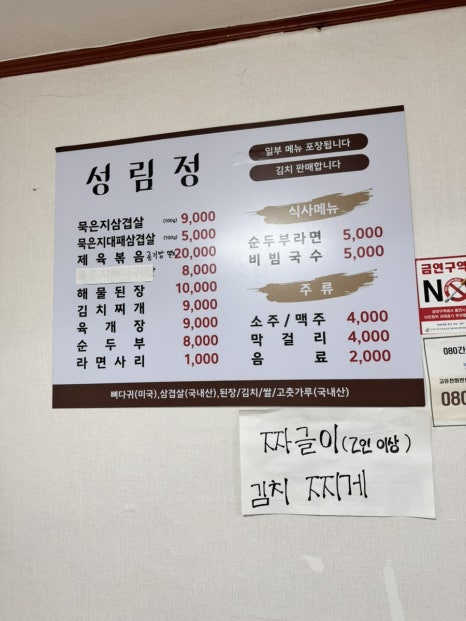 성림정
일부 메뉴 포장됩니다
김치 판매합니다
묵은지삼겹살 (100g) 9,000
묵은지대패삼겹살 (100g) 5,000
제육볶음 20,000
8,000
해물된장 10,000
김치찌개 9,000
육개장 9,000
순두부 8,000
라면사리 1,000
식사메뉴
순두부라면 5,000
비빔국수 5,000
주류
소주/맥주 4,000
막걸리 4,000
음료 2,000
뼈다귀(미국),삼겹살(국내산),된장/김치/쌀/고춧가루(국내산)
짜글이(2인 이상)
김치 찌게
금연구역
NO
080
080